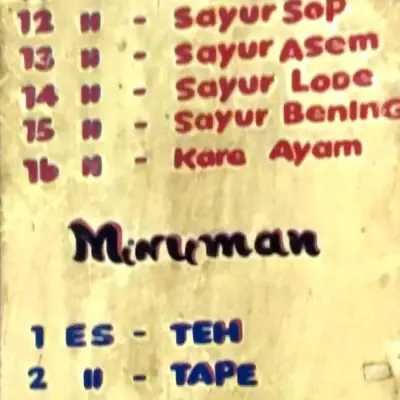 12 " - Sayur Sop
13 " - Sayur Asem
14 " - Sayur Lode
15 " - Sayur Bening
16 " - Kare Ayam
Minuman
1 ES - TEH
2 " - TAPE